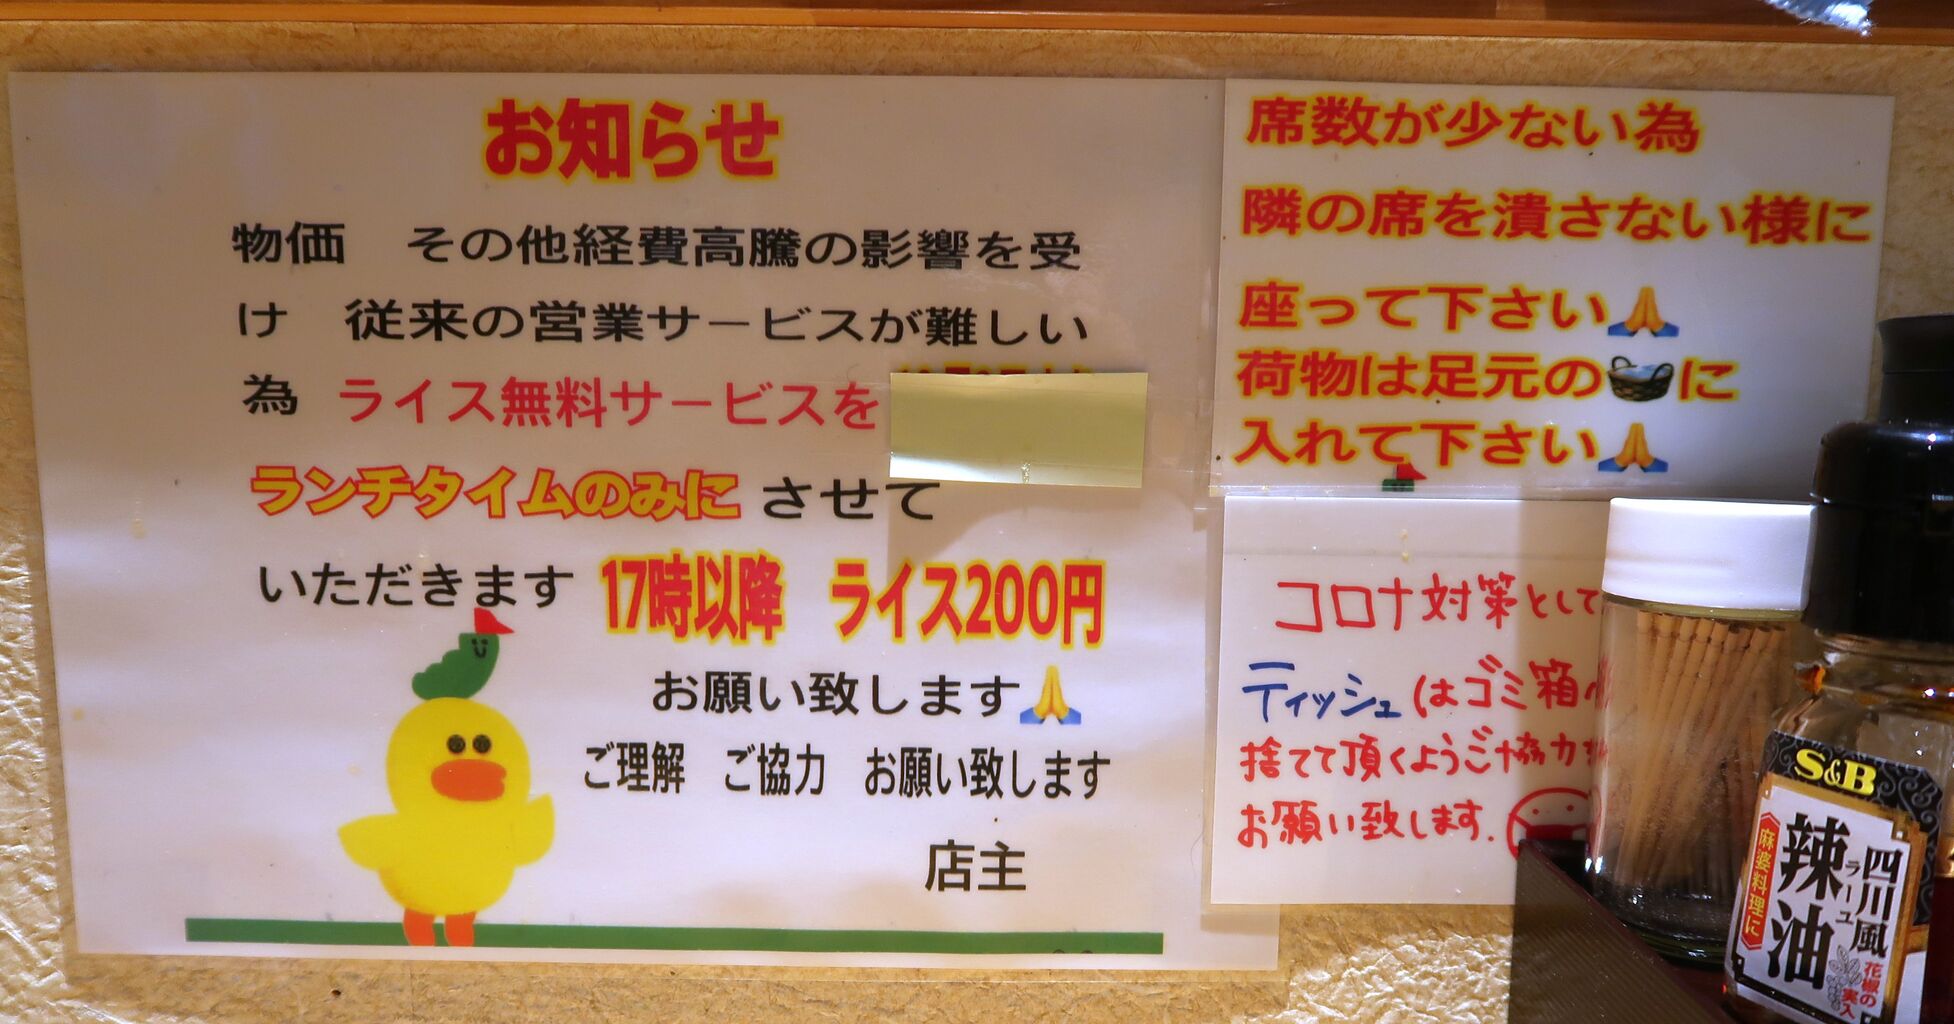 お知らせ
物価 その他経費高騰の影響を受
け 従来の営業サービスが難しい
為 ライス無料サービスを
ランチタイムのみに させて
いただきます 17時以降 ライス200円
お願い致します🙏
ご理解 ご協力 お願い致します
店主
席数が少ない為
隣の席を潰さない様に
座って下さい🙏
荷物は足元の🧺に
入れて下さい🙏
コロナ対策として
ティッシュはゴミ箱
捨てて頂くようご協力
お願い致します.
S&B
四川風
辣油
ラー油
麻婆料理に
花椒の
実入